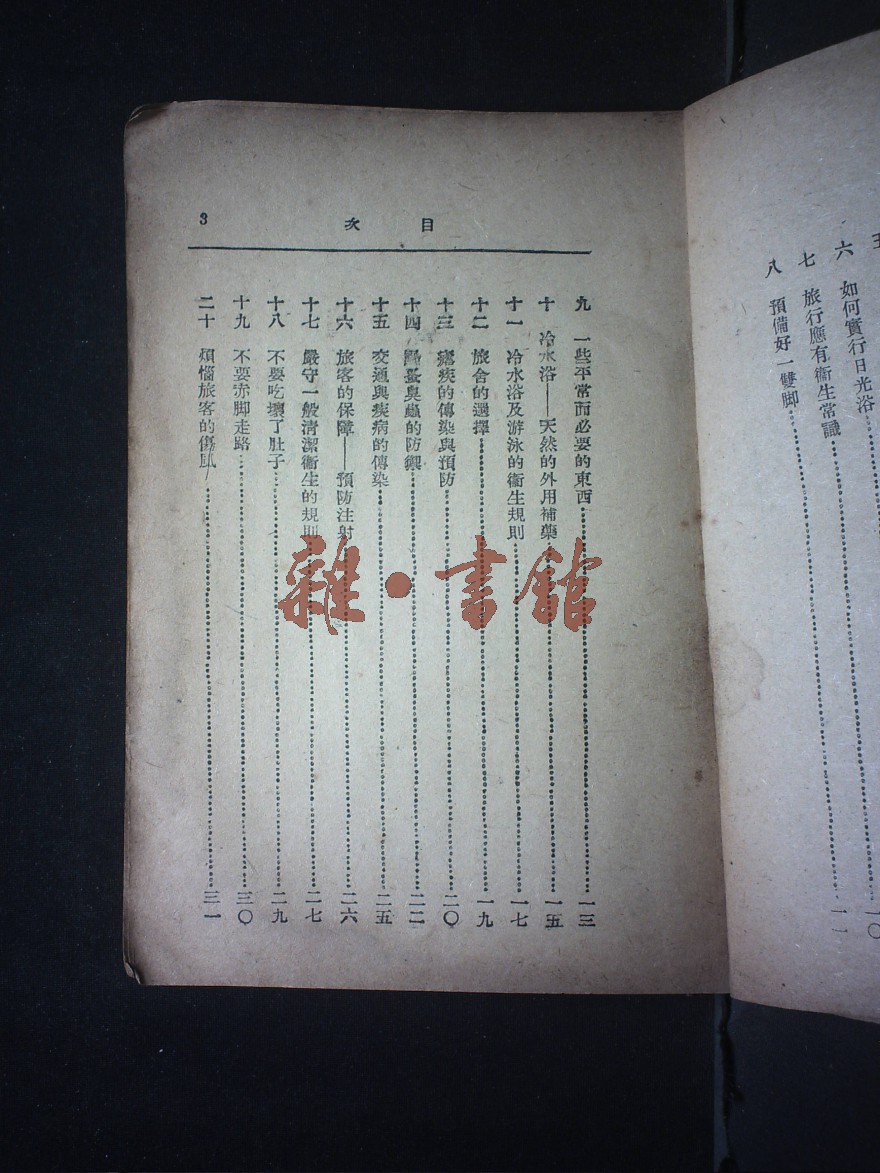 六　如何實行日光浴
七　旅行應有衞生常識……一〇
八　預備好一雙脚……一一
目次　3
九　一些平常而必要的東西……一三
十　冷水浴——天然的外用補藥……一五
十一　冷水浴及游泳的衞生規則……一七
十二　旅舍的選擇……一九
十三　瘧疾的傳染與預防……二〇
十四　蚤與蟲的防禦……二二
十五　交通與疾病的傳染……二五
十六　旅客的保障——預防注射……二六
十七　嚴守一般清潔衞生的規則……二七
十八　不要吃壞了肚子……二九
十九　不要赤脚走路……三〇
二十　煩惱旅客的傷風……三一
雜·書館